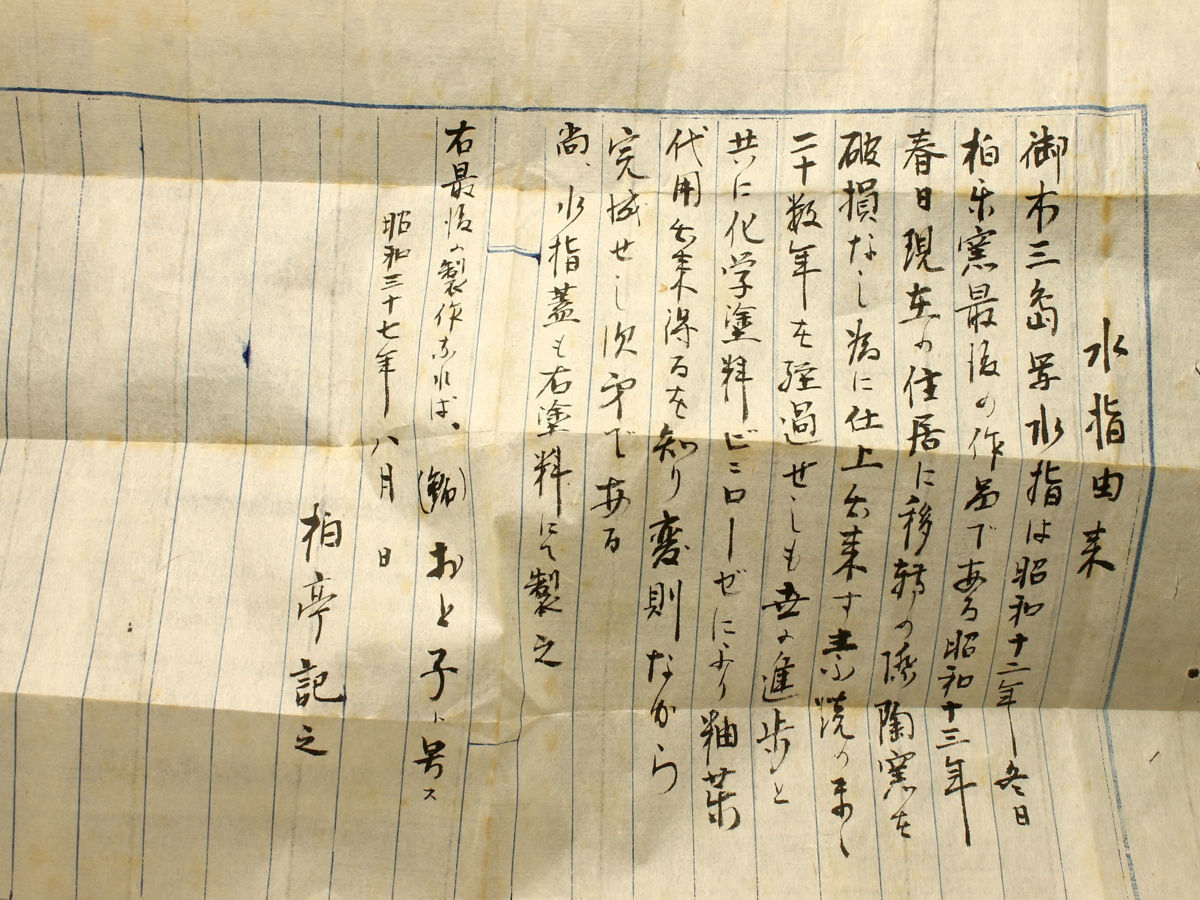 水指由来
御本三島写水指は昭和十二年冬日
柏楽窯最後の作品である昭和十三年
春日現在の住居に移転の際陶窯を
破損なし為に仕上出来す素焼のまし
二十数年を経過せしも世の進歩と
共に化学塗料ビニローゼにより釉薬
代用出来得るを知り変則なから
完成せし次第である
尚、水指蓋も右塗料にて製之
右最後の製作なれば、 おと子に号ス
昭和三十七年八月 日
柏亭記之